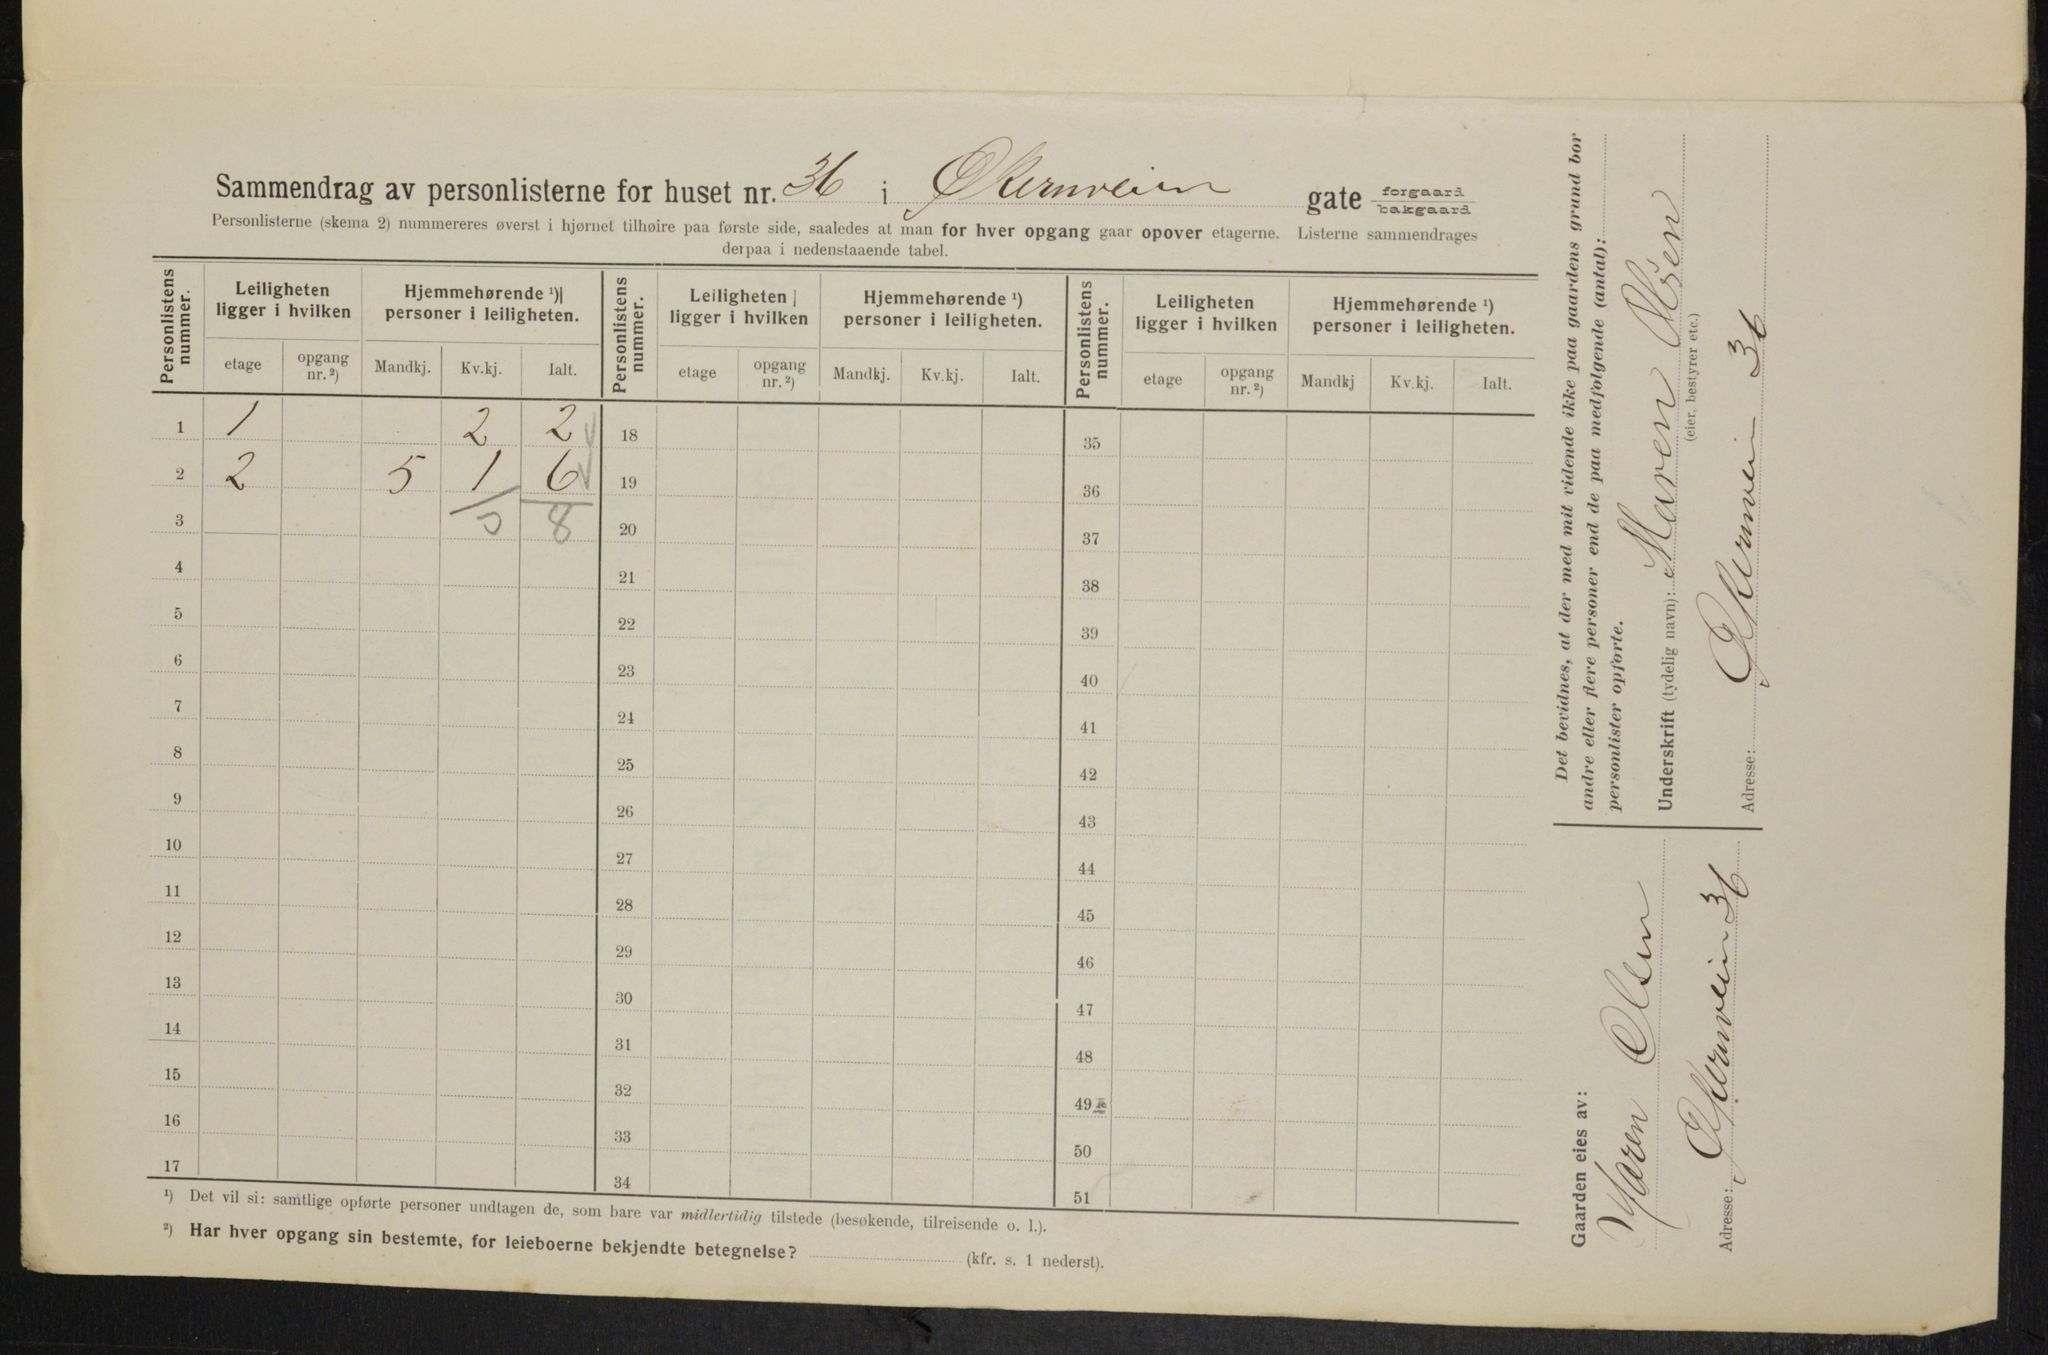 Sammendrag av personlisterne for huset nr. 36 i Økernveien gate forgaard bakgaard
Personlisterne (skema 2) nummereres øverst i hjørnet tilhøire paa første side, saaledes at man for hver opgang gaar opover etagerne. Listerne sammendrages
derpaa i nedenstaaende tabel.
Personlistens nummer. Leiligheten ligger i hvilken Hjemmehørende ¹) personer i leiligheten. Personlistens nummer. Leiligheten ligger i hvilken Hjemmehørende ¹) personer i leiligheten. Personlistens nummer. Leiligheten ligger i hvilken Hjemmehørende ¹) personer i leiligheten.
etage opgang nr.²) Mandkj. Kv.kj. Ialt. etage opgang nr.²) Mandkj. Kv.kj. Ialt. etage opgang nr.²) Mandkj Kv.kj. Ialt.
1 1 2 2 18 35
2 2 5 1 6 19 36
3 8 20 37
4 21 38
5 22 39
6 23 40
7 24 41
8 25 42
9 26 43
10 27 44
11 28 45
12 29 46
13 30 47
14 31 48
15 32 49
16 33 50
17 34 51
¹) Det vil si: samtlige opførte personer undtagen de, som bare var midlertidig tilstede (besøkende, tilreisende o. l.).
²) Har hver opgang sin bestemte, for leieboerne bekjendte betegnelse? (kfr. s. 1 nederst).
Det bevidnes, at der med mit vidende ikke paa gaardens grund bor
andre eller flere personer end de paa medfølgende (antal):
personlister opførte.
Underskrift (tydelig navn): Maren Olsen
(eier, bestyrer etc.)
Adresse: Økernvein 36
Gaarden eies av:
Maren Olsen
Adresse: Økernvein 36